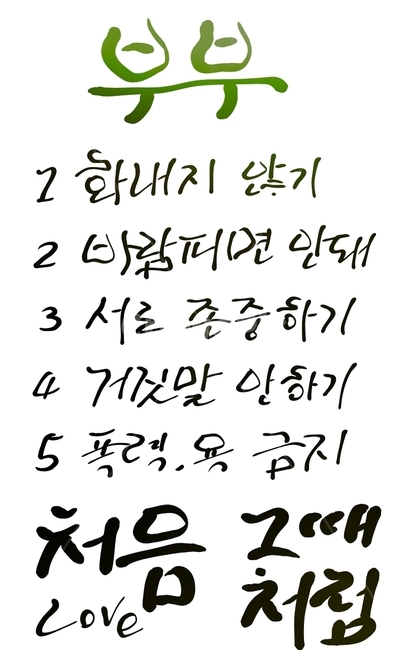 부부
1 화내지 않기
2 바람피면 안돼
3 서로 존중하기
4 거짓말 안하기
5 폭력.욕 금지
처음 그때
Love 처럼